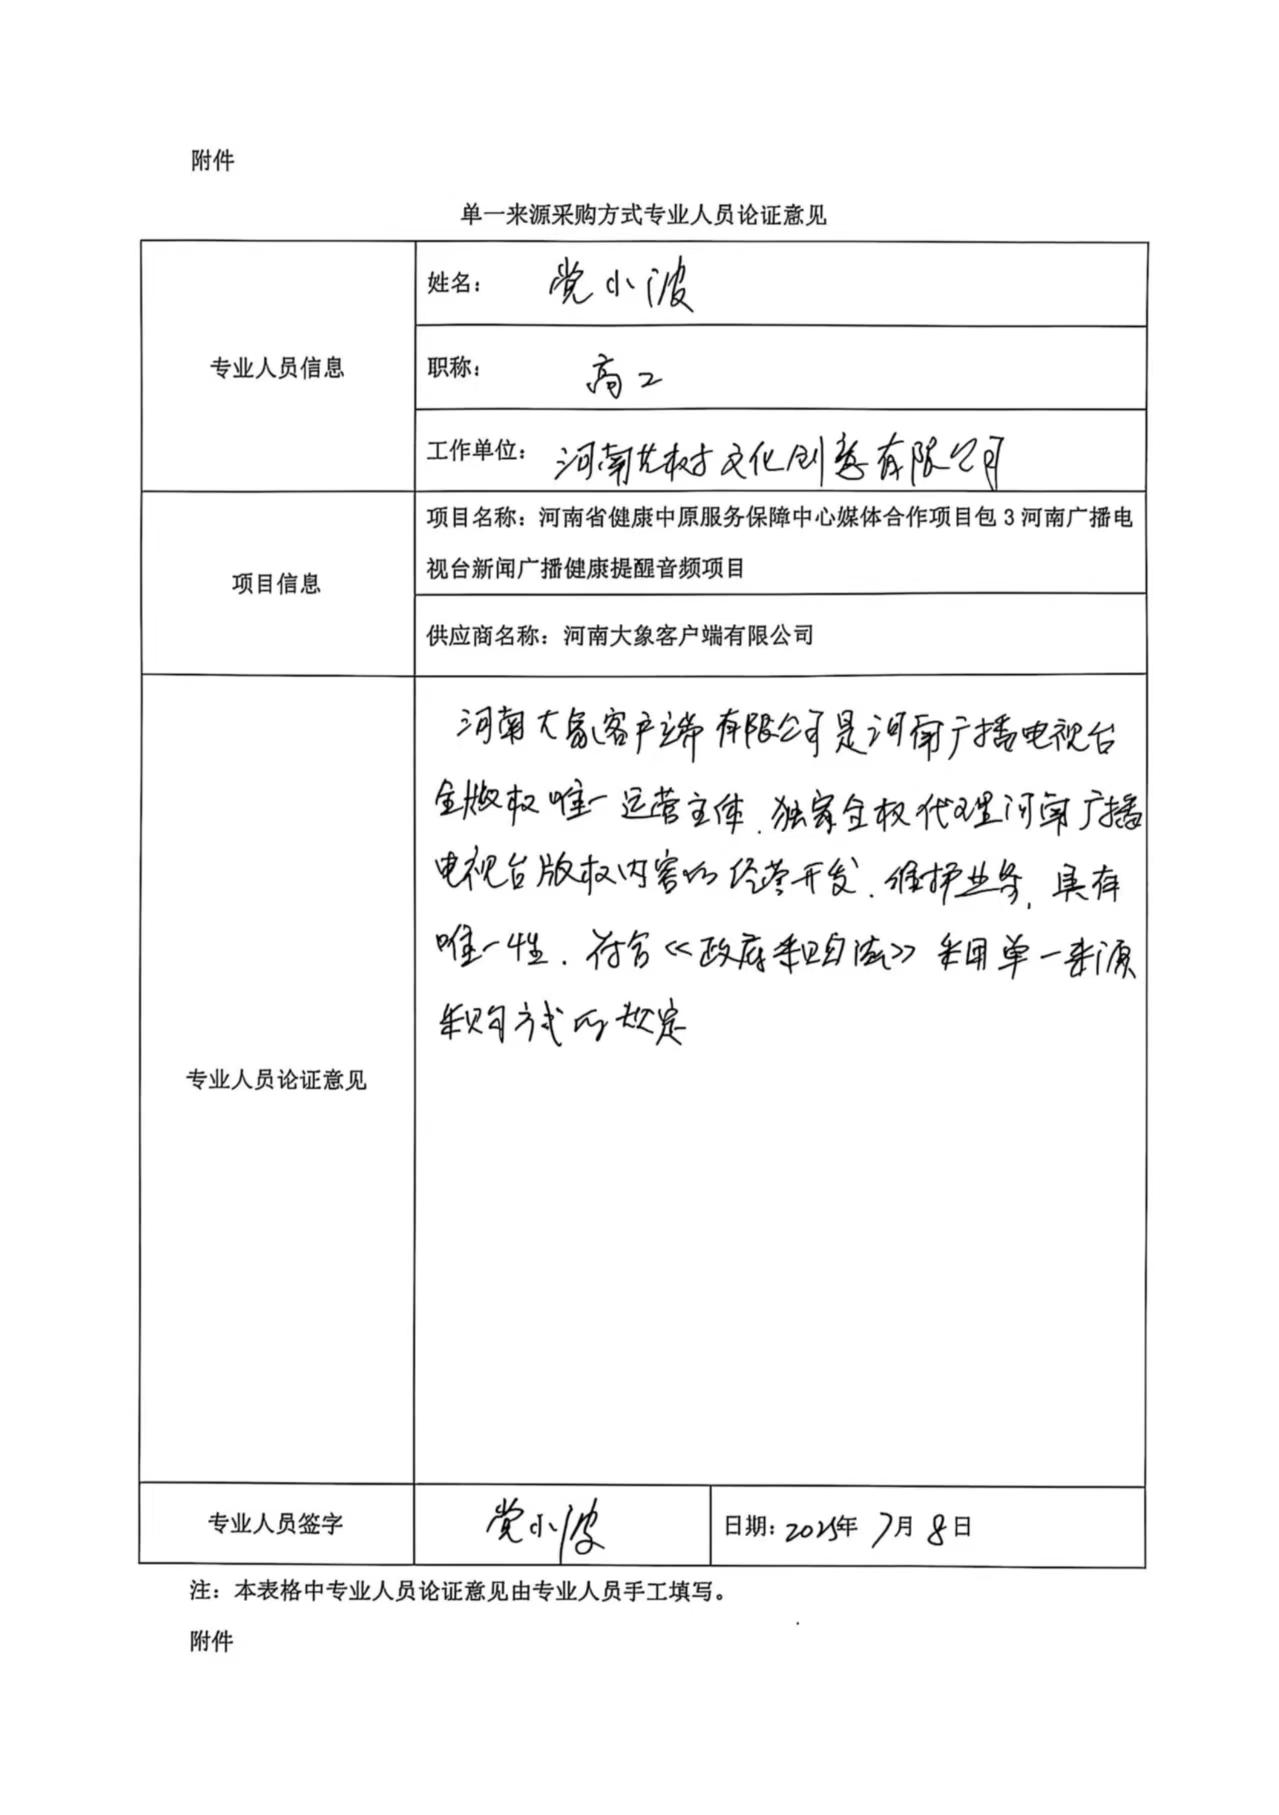 附件
单一来源采购方式专业人员论证意见
专业人员信息
姓名： 党小波
职称： 高工
工作单位： 河南艺树文化创意有限公司
项目信息
项目名称：河南省健康中原服务保障中心媒体合作项目包3河南广播电
视台新闻广播健康提醒音频项目
供应商名称：河南大象客户端有限公司
专业人员论证意见
河南大象客户端有限公司是河南广播电视台
全版权唯一运营主体.独家全权代理河南广播
电视台版权内容的经营开发.维护业务,具有
唯一性.符合《政府采购法》采用单一来源
采购方式的规定
专业人员签字
党小波
日期：2025年7月8日
注：本表格中专业人员论证意见由专业人员手工填写。
附件